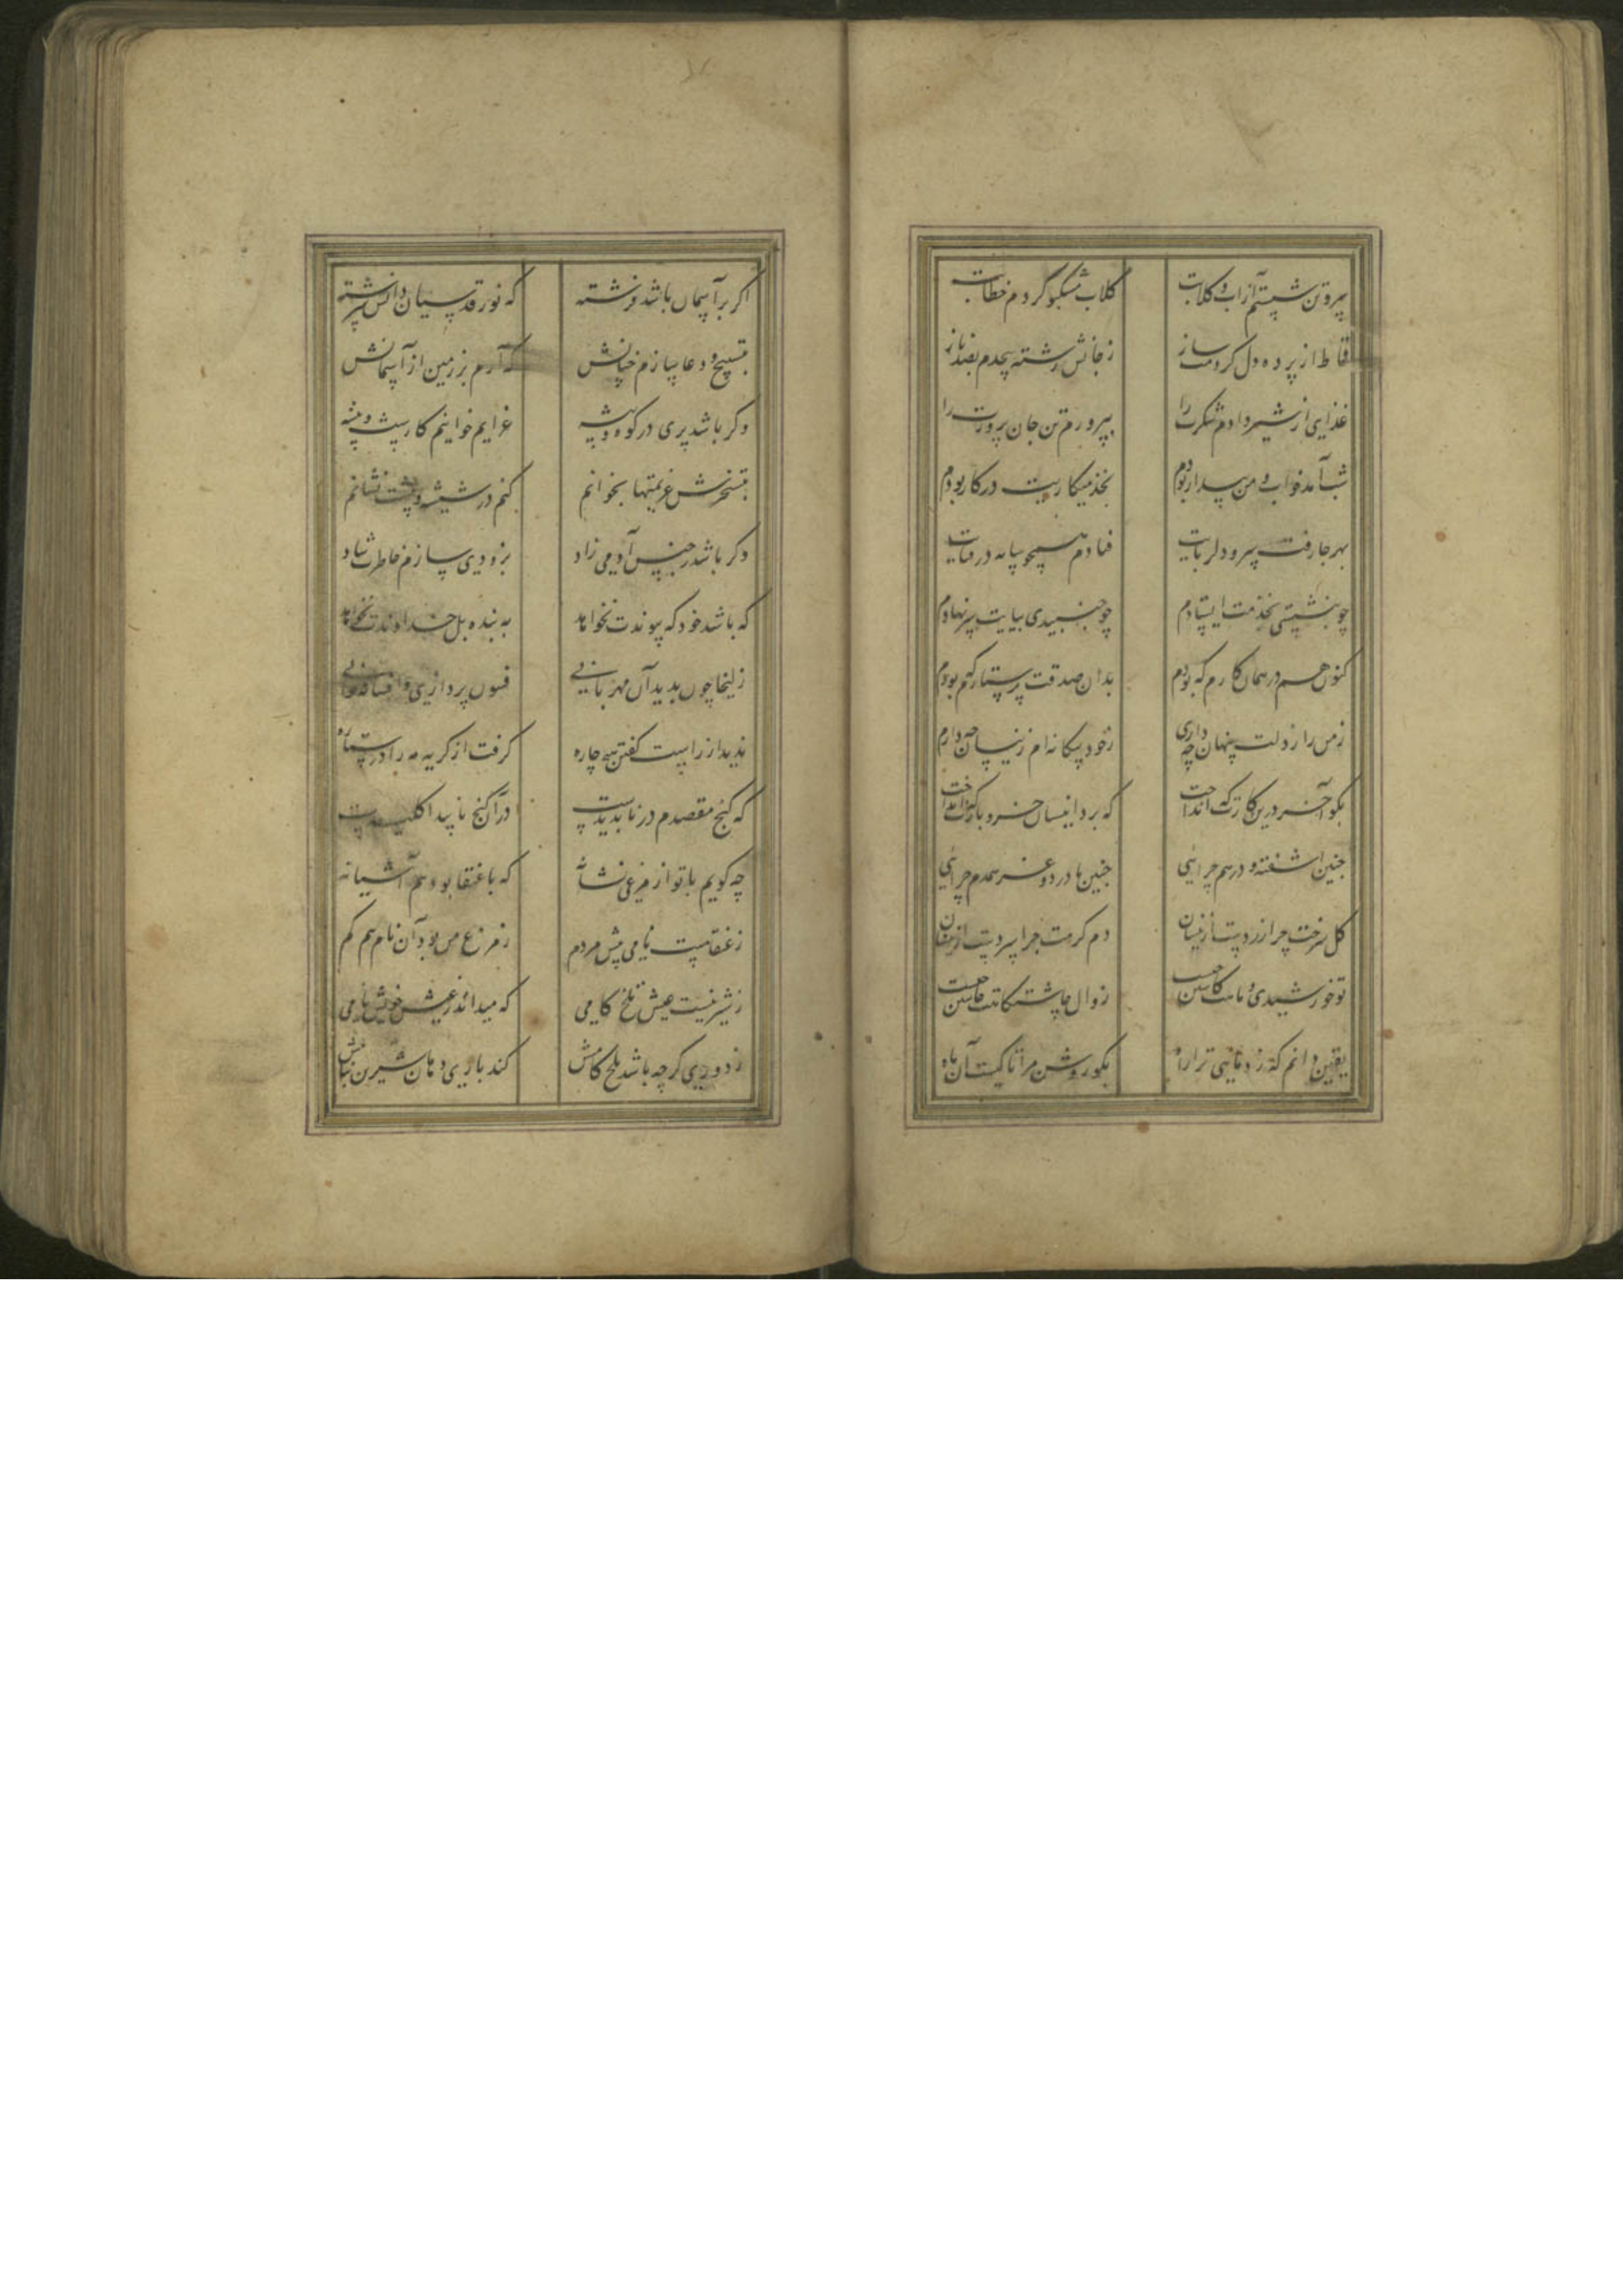 سر و تن شستم از آب و گلابت گلاب مشکبو کردم خطابت
قماط از پرده دل کردمت ساز ز جانش رشته پیچدم بصد ناز
غذایی از شیر دادم شکرت را بپروردم تن جان پرورت را
شب آمد خواب و من بیدار بودم بخدمتکاریت در کار بودم
بهر جا رفت سرو دلربایت فتادم همچو سایه در قفایت
چو بنشستی بخدمت ایستادم چو خسبیدی بپایت سر نهادم
کنون هم در همان کارم که بودم بدان صدقت پرستارم که بودم
ز من راز دلت پنهان چه داری ز خود بیگانه ام زینسان چه داری
بگو آخر درین کارت که انداخت که برد اینسان خر و بارت که انداخت
چنین آشفته و درهم چرایی چنین با درد و غم همدم چرایی
گل سرخت چرا زردست ازینسان دم گرمت چرا سردست ازینسان
تو خورشیدی و ماهت کاستن چیست زوال چاشتگاهت خاستن چیست
یقین دانم که زد ماهی ترا راه بگو روشن مرا تا کیست آن ماه
اگر بر آسمان باشد فرشته که نور قدسیان ذاتش سرشته
بتسبیح و دعا سازم چنانش که آرم بر زمین از آسمانش
وگر باشد پری در کوه و بیشه عزایم خوانیم کارست و پیشه
بتسخیرش عزیمتها بخوانم کنم در شیشه و پیشت نشانم
وگر باشد ز جنس آدمی زاد بزودی سازم خاطر شاد
که باشد خود که پیوندت نخواهد نه بنده بل خداوندت نخواهد
زلیخا چون بدید آن مهربانی فسون پردازی و افسانه خوانی
ندید از راست گفتن هیچ چاره گرفت از گریه مه را در ستاره
که گنج مقصدم در ناپدیدست در آن گنج ناپیدا کلیدست
چه گویم با تو از مرغی نشانه که با عنقا بود هم آشیانه
ز عنقا هست نامی پیش مردم ز مرغ من بود آن نام هم گم
ز شیرینیست عیش تلخ کامی که میداند ز عیش خویش نامی
ز دوری گرچه باشد تلخ کامش کند باری دهان شیرین بنامش